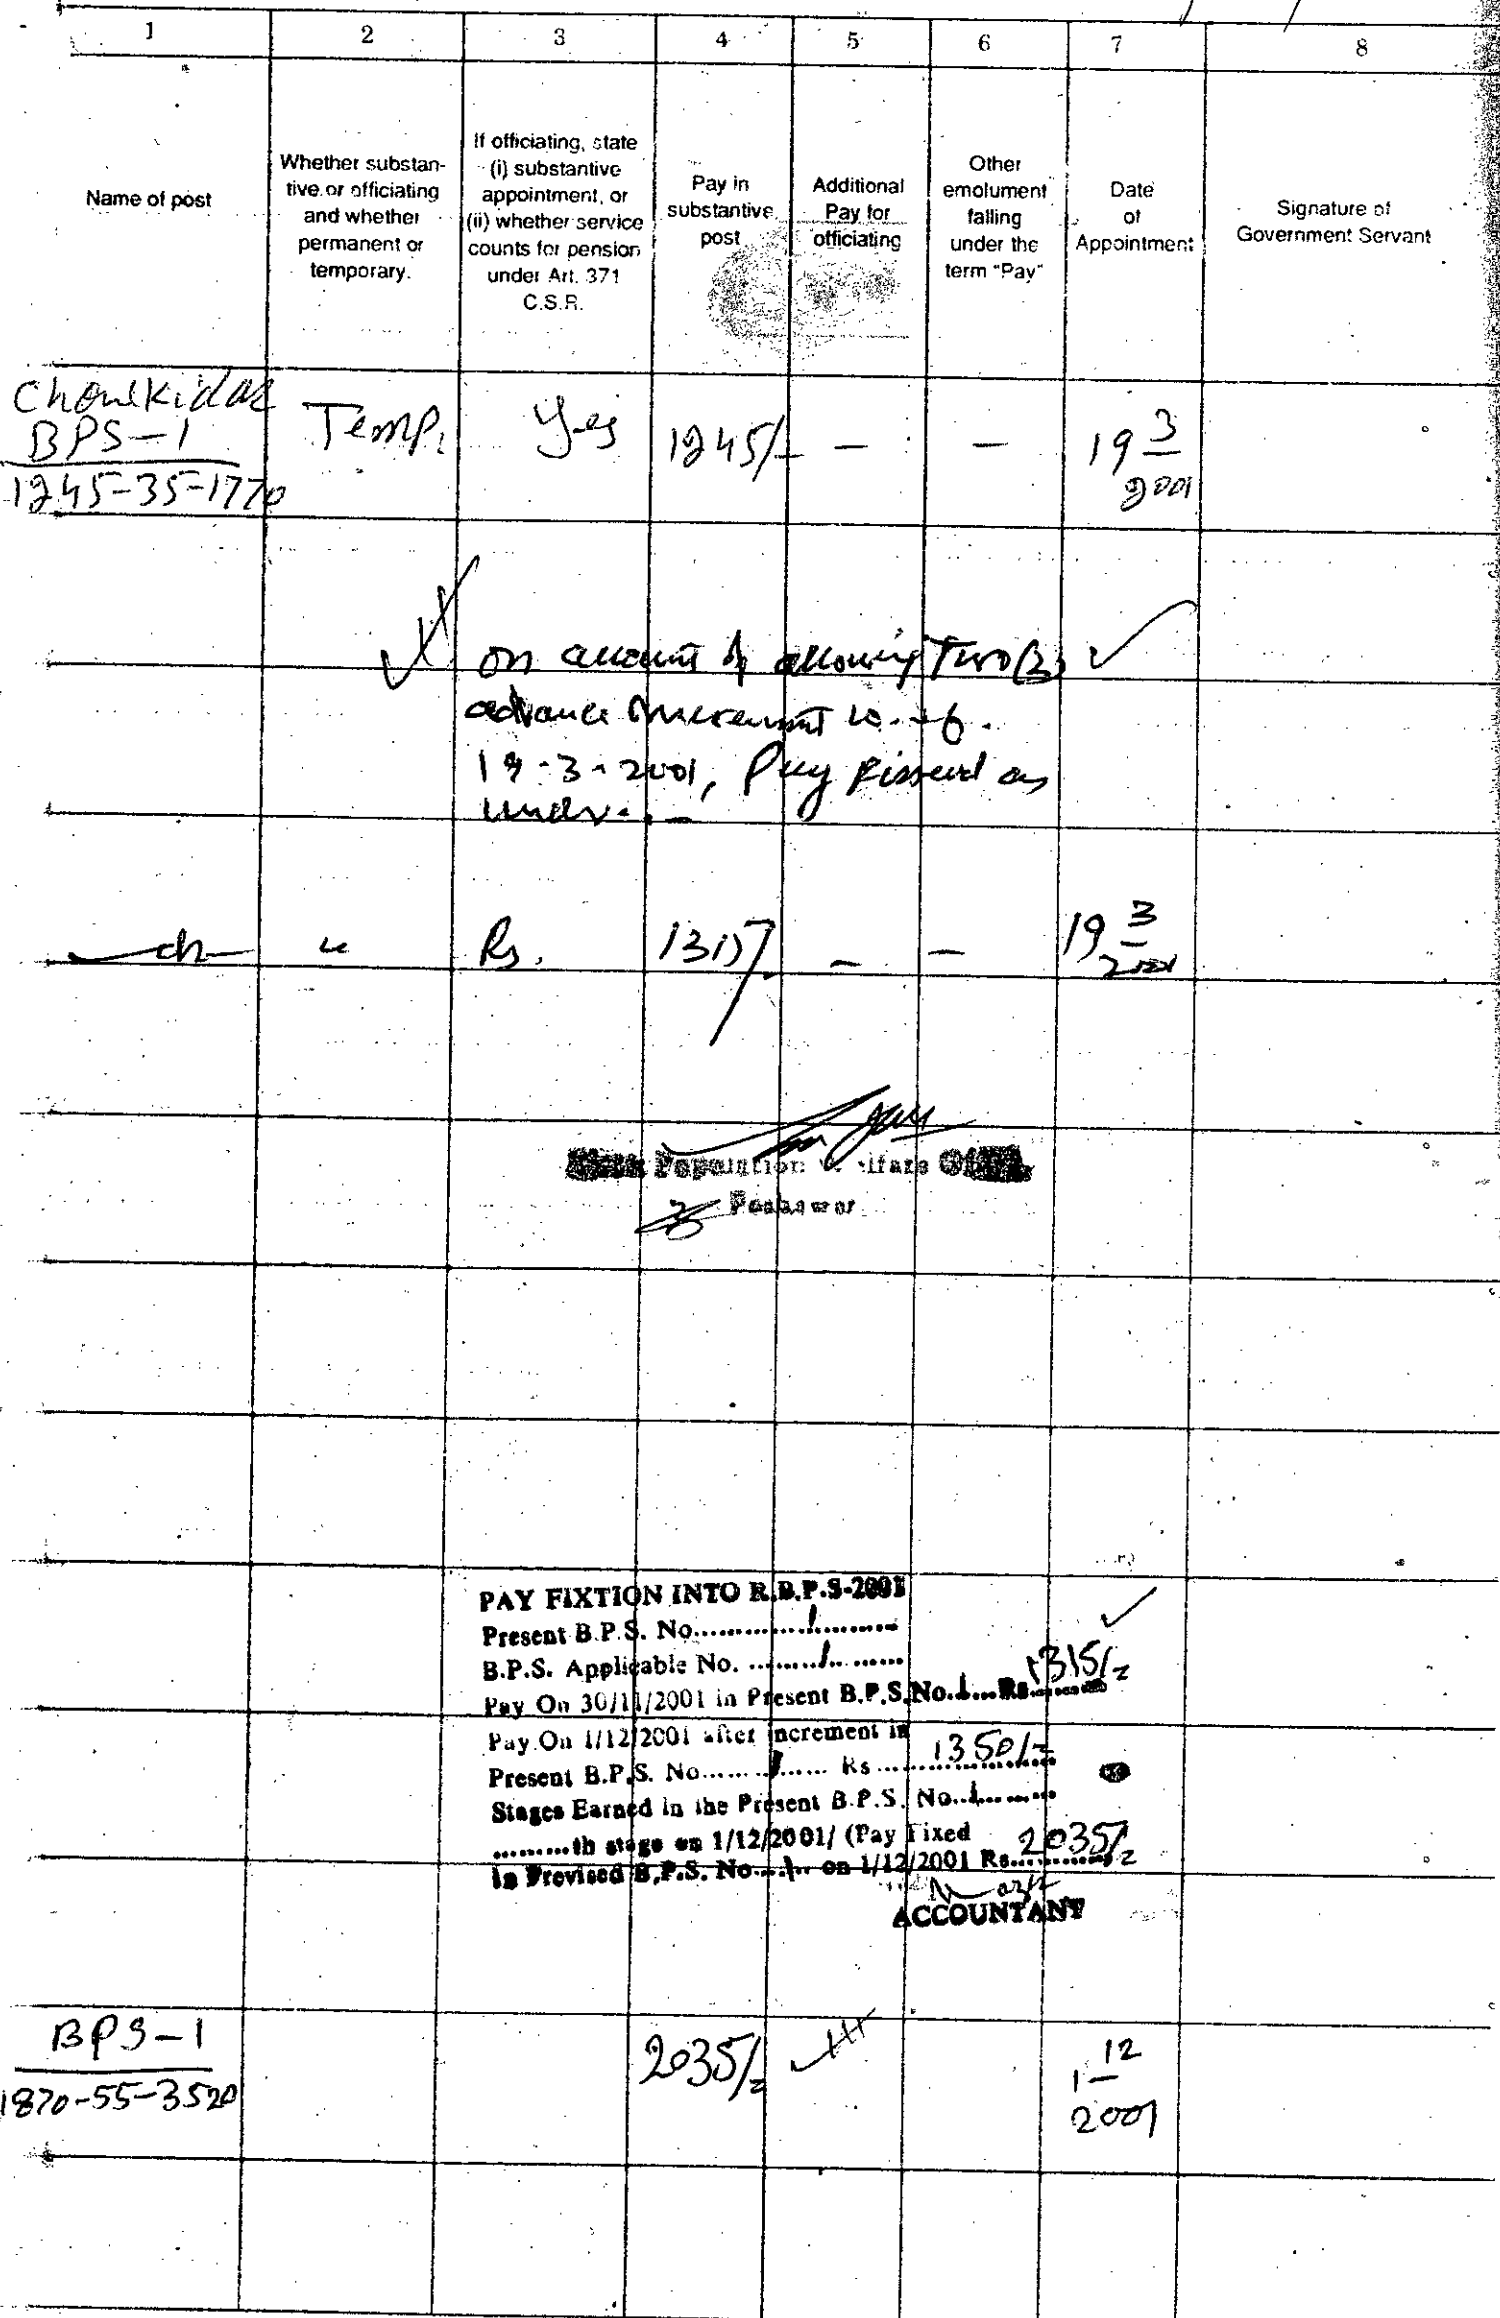 1 2 3 4 5 6 7 8
Name of post
Whether substan-
tive or officiating
and whether
permanent or
temporary.
If officiating, state
(i) substantive
appointment, or
(ii) whether service
counts for pension
under Art. 371
C.S.R.
Pay in
substantive
post
Additional
Pay for
officiating
Other
emolument
falling
under the
term "Pay"
Date
of
Appointment
Signature of
Government Servant
Chowkidar
BPS-1
1245-35-1770
Temp.
Yes
1245/-
-
-
19 3
2001
on account of allowing Two (2)
advance increment w.e.f.
19-3-2001, Pay fixed as
under.-
-do-
"
Rs.
1315/-
-
-
19 3
2001
Population Welfare
Peshawar
PAY FIXTION INTO R.B.P.S-2001
Present B.P.S. No. 1
B.P.S. Applicable No. 1
Pay On 30/11/2001 in Present B.P.S. No. 1 Rs. 1315/-
Pay On 1/12/2001 after increment in
Present B.P.S. No. 1 Rs. 1350/-
Stages Earned in the Present B.P.S. No. 1
.........th stage on 1/12/2001/ (Pay Fixed
in Prevised B.P.S. No. 1 on 1/12/2001 Rs. 2035/-
ACCOUNTANT
BPS-1
1870-55-3520
2035/-
1-12
2001